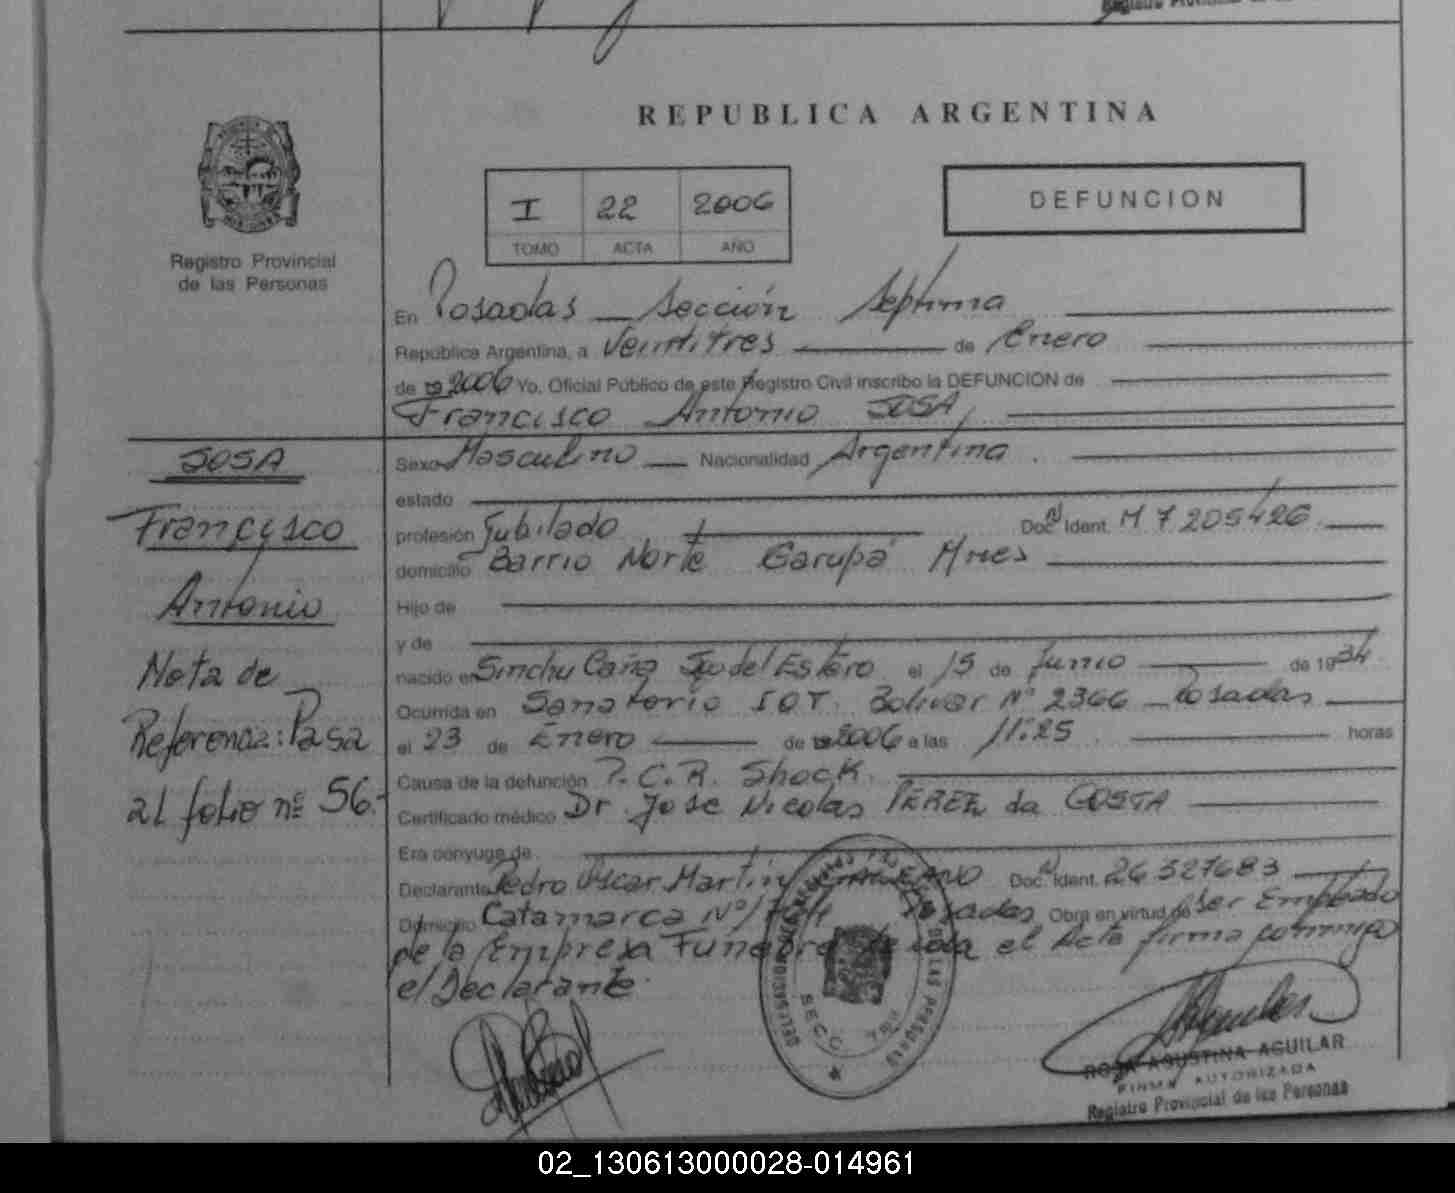 REPUBLICA ARGENTINA
I 22 2006
TOMO ACTA AÑO
DEFUNCION
Registro Provincial
de las Personas
En Posadas Sección Septima
República Argentina, a Veintitres de Enero
de 2006 Yo. Oficial Público de este Registro Civil inscribo la DEFUNCION de
Francisco Antonio SOSA
SOSA
Francisco
Antonio
Nota de
Referencia: Pasa
al folio nº 56.-
Sexo Masculino Nacionalidad Argentina
estado
profesión Jubilado Doc. Ident. M 7 205426
domicilio Barrio Norte Garupá Mnes
Hijo de
y de
nacido en Sinchu Caña Sgo del Estero el 15 de Junio de 1934
Ocurrida en Sanatorio IOT. Bolivar Nº 2366 Posadas
el 23 de Enero de 2006 a las 11:25 horas
Causa de la defunción P.C.R. Shock.
Certificado médico Dr Jose Nicolas PEREZ da COSTA
Era cónyuge de
Declarante Pedro Oscar Martin Doc. Ident. 26 327683
Domicilio Catamarca Nº Posadas Obra en virtud de ser Empleado
de la Empresa el Acta firma conmigo
el Declarante.
DELEGACION
SECC. 7ma
ROSA AGUSTINA AGUILAR
FIRMA AUTORIZADA
Registro Provincial de las Personas
02_130613000028-014961